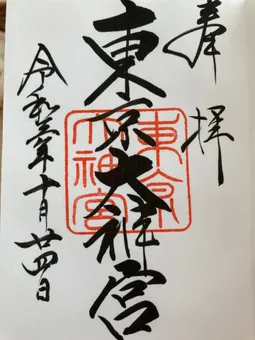 奉拝
東京大神宮
令和三年十月廿四日
東京
大神宮